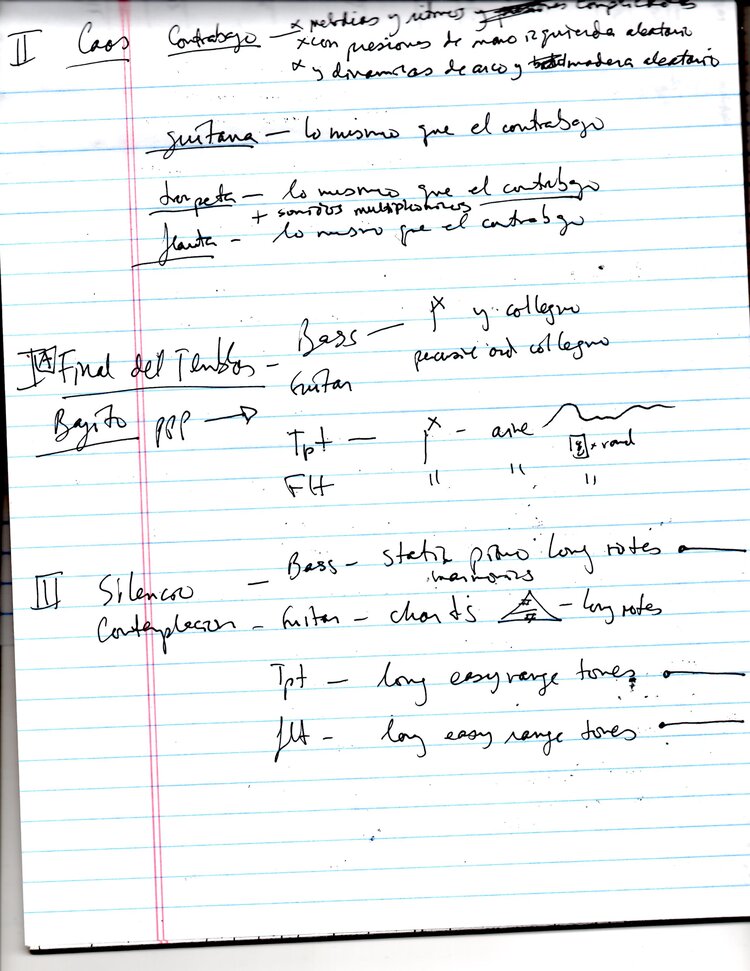 II Caos Contrabajo — x melodias y ritmos complicados
x con presiones de mano izquierda aleatorio
x y dinamicas de arco y madera aleatorio
guitarra — lo mismo que el contrabajo
trompeta — lo mismo que el contrabajo
+ sonidos multiphonicos
flauta - lo mismo que el contrabajo
Bass — x y collegno
IA Final del Temblos - collegno
Guitar
Bajito ppp →
Tpt — x - aire
x round
Flt " " "
III Silencio — Bass - static long notes
harmonics
Contemplacion - Guitar - chords - long notes
Tpt — long easy range tones
flt - long easy range tones